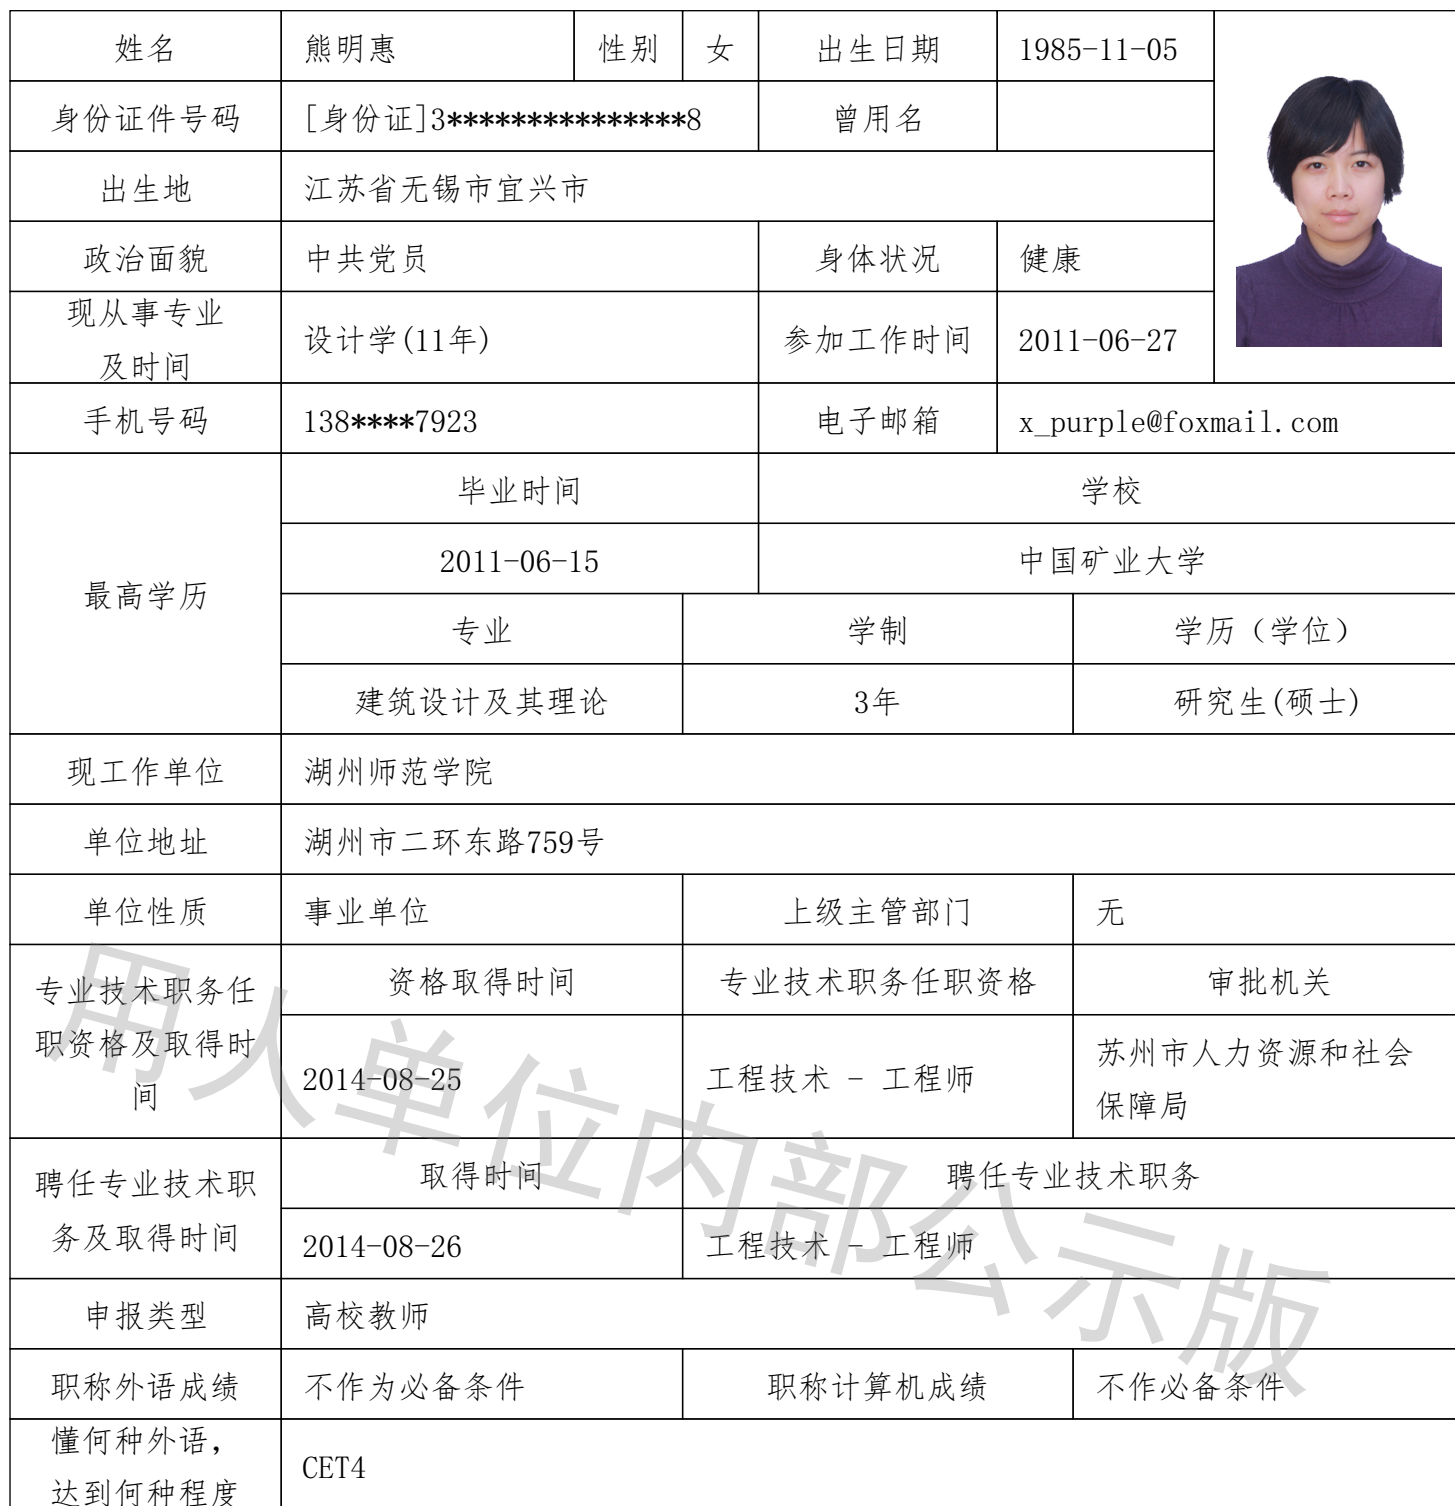 姓名 熊明惠 性别 女 出生日期 1985-11-05
身份证件号码 [身份证]3***************8 曾用名
出生地 江苏省无锡市宜兴市
政治面貌 中共党员 身体状况 健康
现从事专业
及时间
设计学(11年) 参加工作时间 2011-06-27
手机号码 138****7923 电子邮箱 x_purple@foxmail.com
最高学历
毕业时间 学校
2011-06-15 中国矿业大学
专业 学制 学历（学位）
建筑设计及其理论 3年 研究生(硕士)
现工作单位 湖州师范学院
单位地址 湖州市二环东路759号
单位性质 事业单位 上级主管部门 无
专业技术职务任
职资格及取得时
间
资格取得时间 专业技术职务任职资格 审批机关
2014-08-25 工程技术 - 工程师 苏州市人力资源和社会
保障局
聘任专业技术职
务及取得时间
取得时间 聘任专业技术职务
2014-08-26 工程技术 - 工程师
申报类型 高校教师
职称外语成绩 不作为必备条件 职称计算机成绩 不作必备条件
懂何种外语，
达到何种程度
CET4
用人单位内部公示版